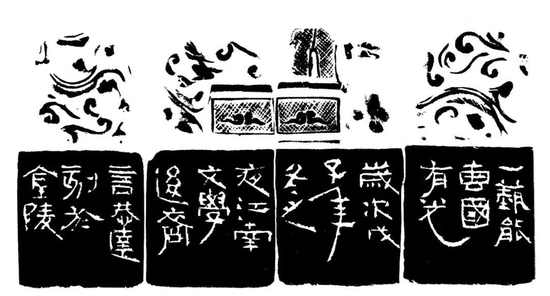 一藝能
國
有光
歲次戊
子年
冬之
夜江南
文學
齋
言恭達
刻於
金陵